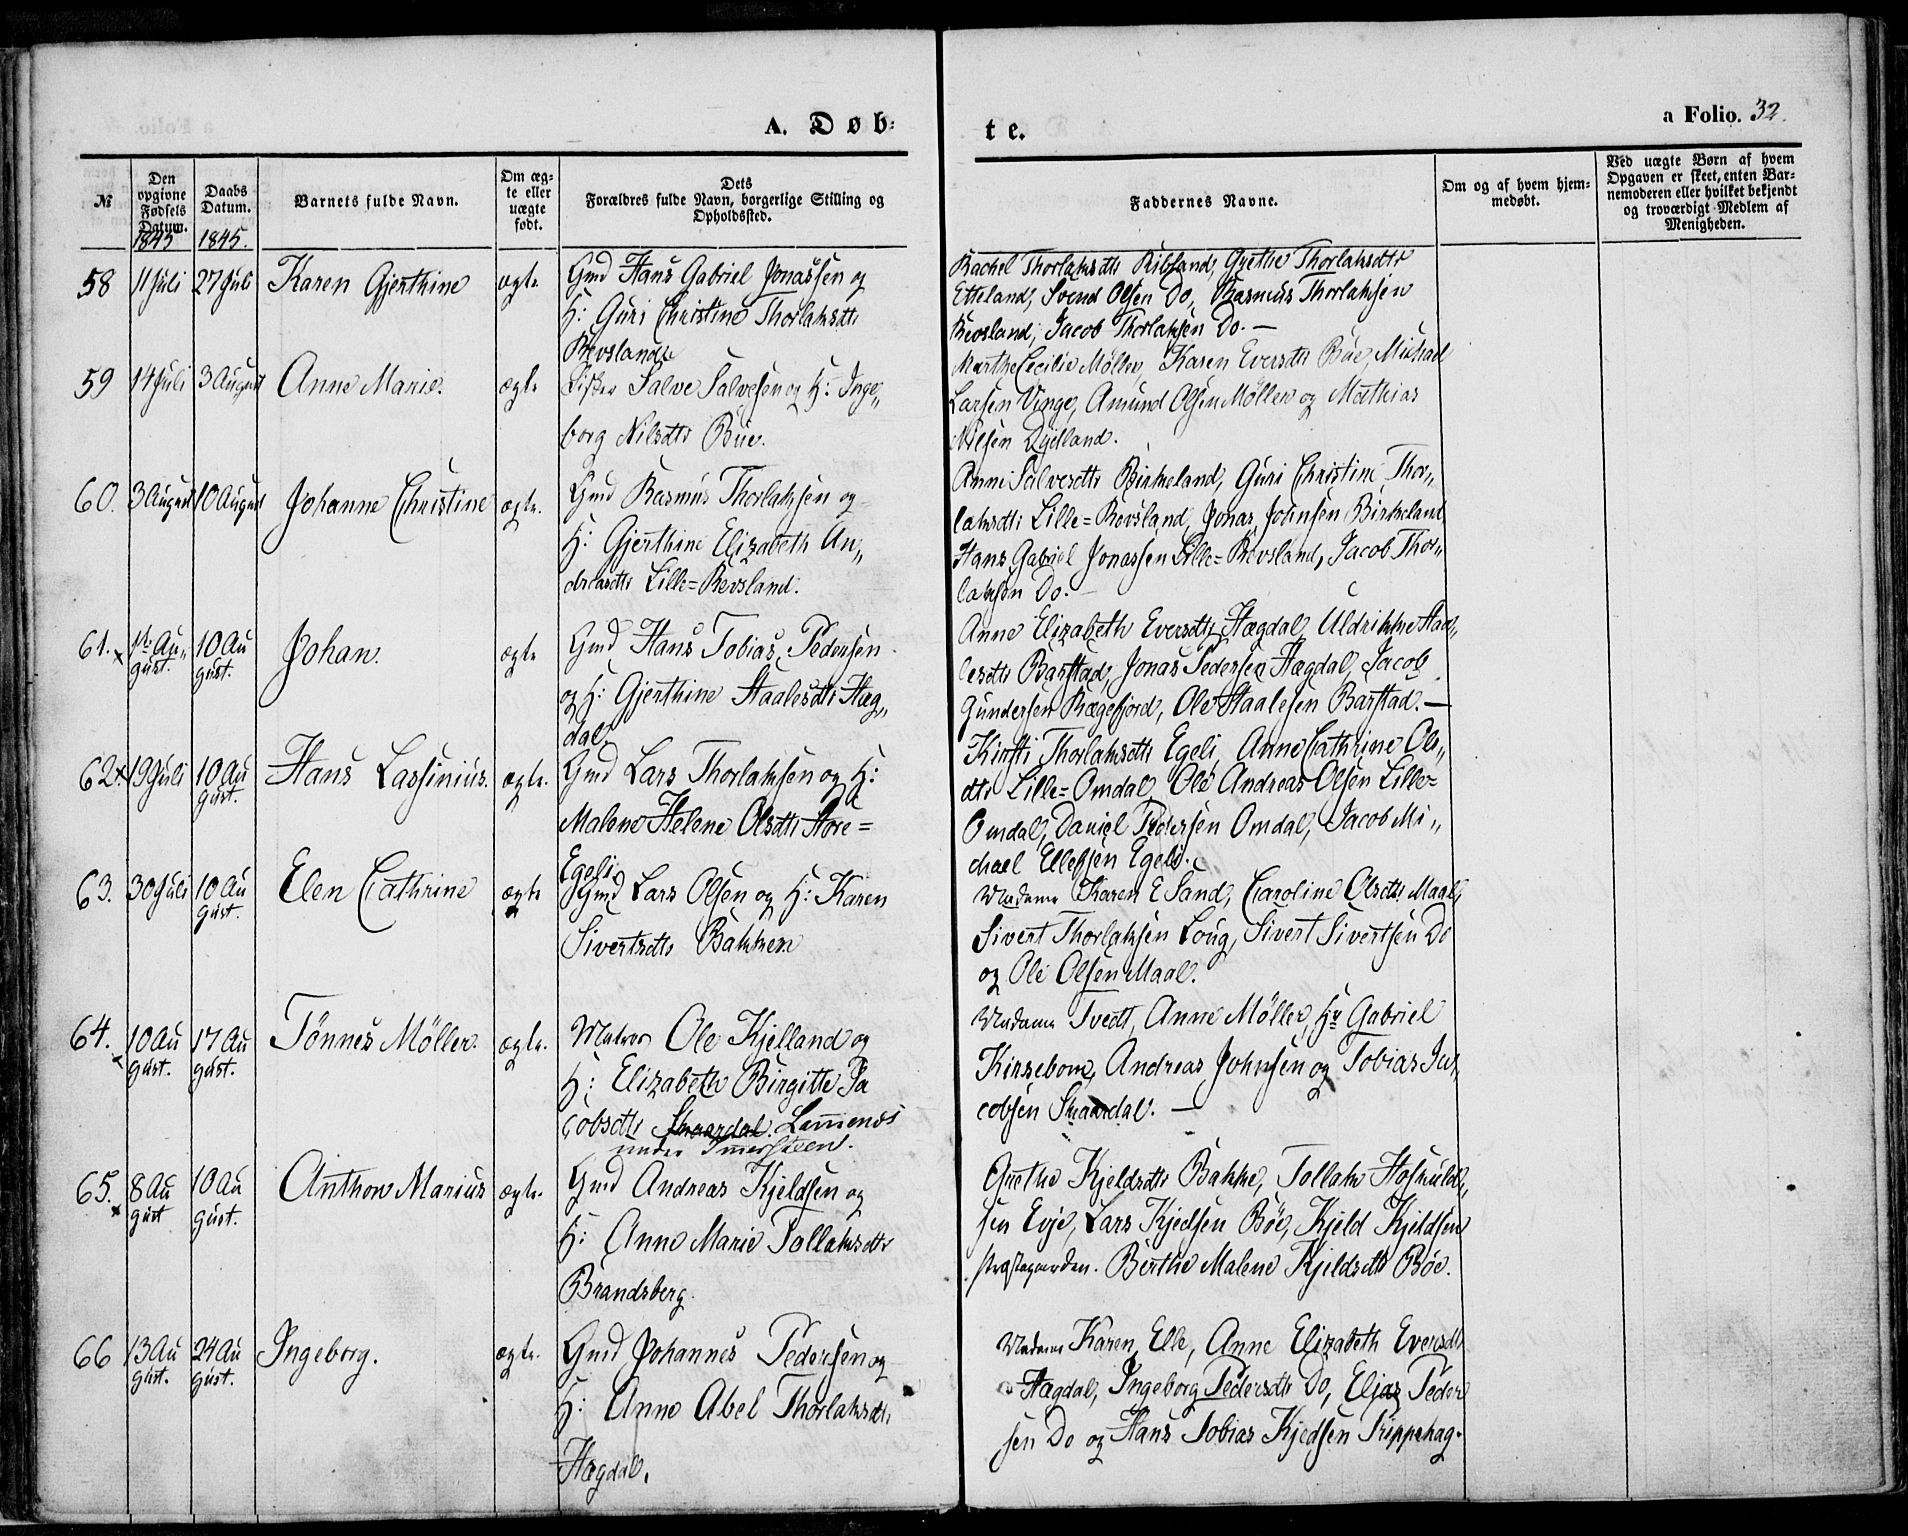 A. Døb-
te.
a Folio. 32.
№
Den opgivne Fødsels Datum.
1845
Daabs Datum.
1845.
Barnets fulde Navn.
Om ægte eller uægte født.
Dets
Forældres fulde Navn, borgerlige Stilling og
Opholdssted.
Faddernes Navne.
Om og af hvem hjemmedøbt.
Ved uægte Børn af hvem
Opgaven er skeet, enten Bar-
nemoderen eller hvilket bekjendt
og troværdigt Medlem af
Menigheden.
58 11 Juli 27 Juli Karen Gjerthine ægte Gmd Hans Gabriel Jonassen og
H: Guri Christine Thorlaksdtr
Revsland.
Rachel Thorlaksdtr Ribland, Grethe Thorlaksdtr
Etteland, Svend Olsen Do, Rasmus Thorlaksen
Revsland, Jacob Thorlaksen Do. —
59 14 Juli 3 August Anne Marie. ægte Salve Salvesen og H: Inge„
borg Nilsdtr Böe.
Marthe Cecilie Møller, Karen Eversdtr Böe, Michael
Larsen Vinge, Amund Olsen Møller og Mathias
Nilsen Dydland.
60. 3 August 10 August Johanne Christine ægte. Gmd Rasmus Thorlaksen og
H: Gjerthine Elizabeth An„
dreasdtr Lille=Revsland.
Anne Salvesdtr Birkeland, Guri Christine Thor„
laksdtr Lille=Revsland, Jonas Johnsen Birkeland
Hans Gabriel Jonassen Lille=Revsland, Jacob Thor„
laksen Do. —
61. x 1st Au„
gust. 10 Au
gust. Johan. ægte Gmd Hans Tobias Pedersen
og H: Gjerthine Staalesdtr Hæg„
dal.
Anne Elizabeth Eversdtr Hægdal, Uldrikke Staa„
lesdtr Barstad, Jonas Pedersen Hægdal, Jacob
Gundersen Rægefjord, Ole Staalesen Barstad. —
62. x 19 Juli 10 Au
gust. Hans Lassinius. ægte. Gmd Lars Thorlaksen og H:
Malene Helene Olsdtr Store=
Egeli.
Kirsti Thorlaksdtr Egeli, Anne Cathrine Ols„
dtr Lille=Omdal, Ole Andreas Olsen Lille=
Omdal, Daniel Pedersen Omdal, Jacob Mi„
chael Ellefsen Egeli.
63. 30 Juli 10 Au
gust. Elen Cathrine ægte Gmd Lars Olsen og H: Karen
Sivertsdtr Bakken
Madame Karen E Sand, Caroline Olsdtr Maal,
Sivert Thorlaksen Loug, Sivert Sivertsen Do
og Ole Olsen Maal.
64. x 10 Au
gust. 17 Au
gust. Tönnes Möller. ægte. Matros Ole Kjelland og
H: Elizabeth Birgitte Ja
cobsdtr Skaardal.
under
Madame Tvedt, Anne Møller, Hr Gabriel
Kirsebom, Andreas Johnsen og Tobias Ja„
cobsen Skaardal. —
65. x 8 Au
gust 10 Au
gust. Anthon Marius ægte. Gmd Andreas Kjeldsen og
H: Anne Marie Tollaksdtr
Brandsberg.
Grethe Kjeldsdtr Bakke, Tollak Hoskuld„
sen Evje, Lars Kjedsen Böe, Kjeld Kjeldsen
Præstegaarden. Berthe Malene Kjeldsdtr Böe.
66 13 Au
gust. 24 Au
gust. Ingeborg. ægte. Gmd Johannes Pedersen og
H: Anne Abel Thorlaksdtr
Hægdal.
Madame Karen Elle, Anne Elizabeth Eversdtr
Hægdal, Ingeborg Pedersdtr Do, Elias Peder
sen Do og Hans Tobias Kjedsen Trippehag.